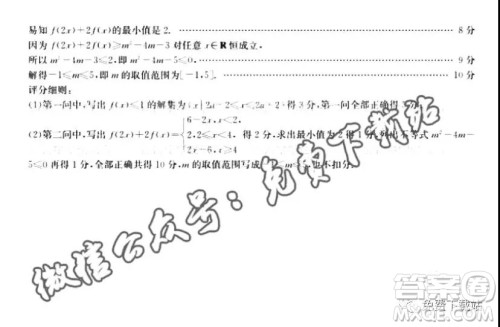 易知 f(2x)+2f(x)的最小值是 2. 8 分
因为 f(2x)+2f(x)≥m²-4m-3 对任意 x∈R 恒成立,
所以 m²-4m-3≤2,即 m²-4m-5≤0. 9 分
解得-1≤m≤5,即 m 的取值范围为[-1,5]. 10 分
评分细则:
(1)第一问中,写出 f(x)≤1 的解集为{x|2a-2≤x≤2a+2}得 3 分,第一问全部正确得
6-2x,x<2,
(2)第二问中,写出 f(2x)+2f(x)= 2,2≤x<4, 得 2 分,求出最小值为 2 得 1 分,列出不等式 m²-4m-
2x-6,x≥4
5≤0 再得 1 分,全部正确共得 10 分,m 的取值范围写成 -1≤m≤5,也不扣分.
微信公众号:免费下载站
答案圈
MXQE.COM